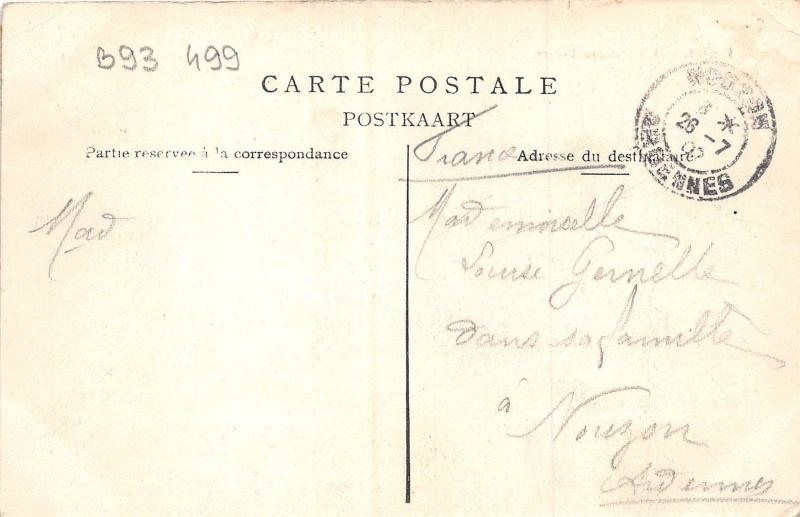 B93 499
CARTE POSTALE
POSTKAART
Partie reservee à la correspondance
France
Adresse du destinataire
NOUZON
26 -7
ARDENNES
Mad
Mademoiselle
Louise Gernelle
dans sa famille
à
Nouzon
Ardennes